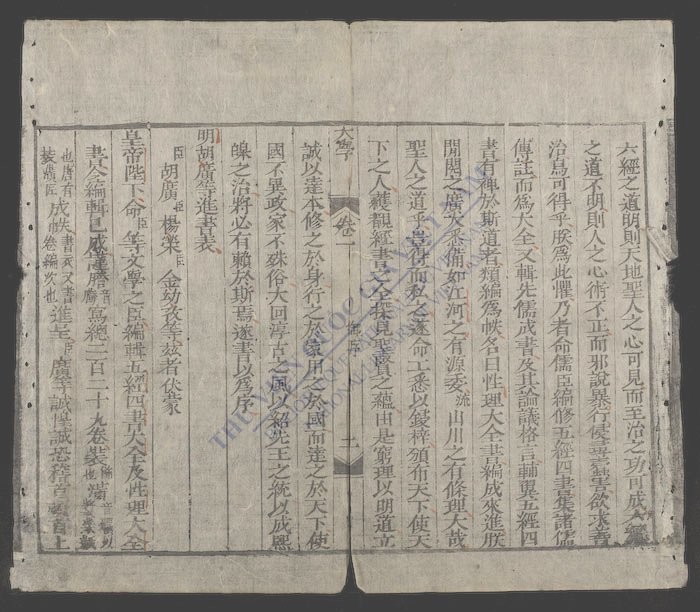 六經之道明則天地聖人之心可見而至治之功可成六經
之道不明則人之心術不正而邪說暴行侵尋蠹害欲求善
治烏可得乎朕爲此懼乃者命儒臣編修五經四書集諸儒
傳註而爲大全又輯先儒成書及其論議格言輔翼五經四
書有裨於斯道者類編爲帙名曰性理大全書編成來進朕
間閱之廣大悉備如江河之有源委流山川之有條理大哉
聖人之道乎豈得而私之遂命工悉以鋟梓頒布天下使天
下之人獲覩經書之全探見聖賢之蘊由是窮理以明道立
大學 卷一 御序 二
誠以達本修之於身行之於家用之於國而達之於天下使
國不異政家不殊俗大回淳古之風以紹先王之統以成熙
皞之治將必有賴於斯焉遂書以爲序
明胡廣等進書表
臣胡廣臣楊榮臣金幼孜等茲者伏蒙
皇帝陛下命臣等文學之臣編輯五經四書大全及性理大全
書今編輯已成謹謄寫總二百二十九卷裝潢
成帙進呈臣廣等誠惶誠恐稽首頓首上
THƯ VIỆN QUỐC GIA VIỆT NAM